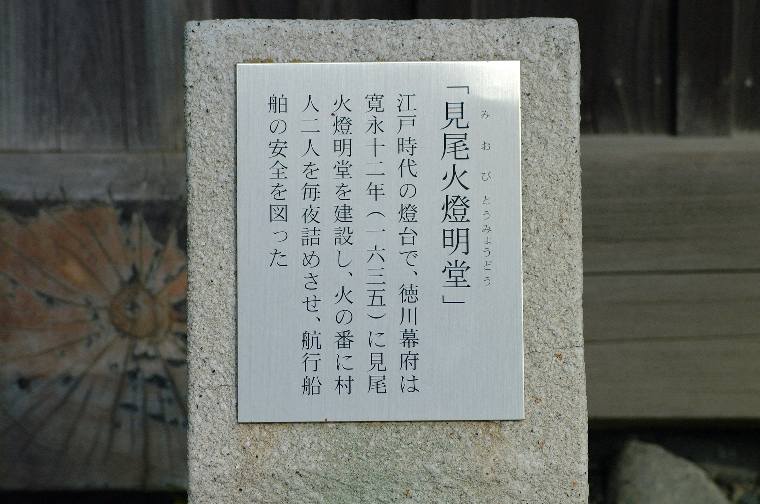 「見尾火燈明堂」
みおびとうみょうどう
江戸時代の燈台で、徳川幕府は
寛永十二年（一六三五）に見尾
火燈明堂を建設し、火の番に村
人二人を毎夜詰めさせ、航行船
舶の安全を図った